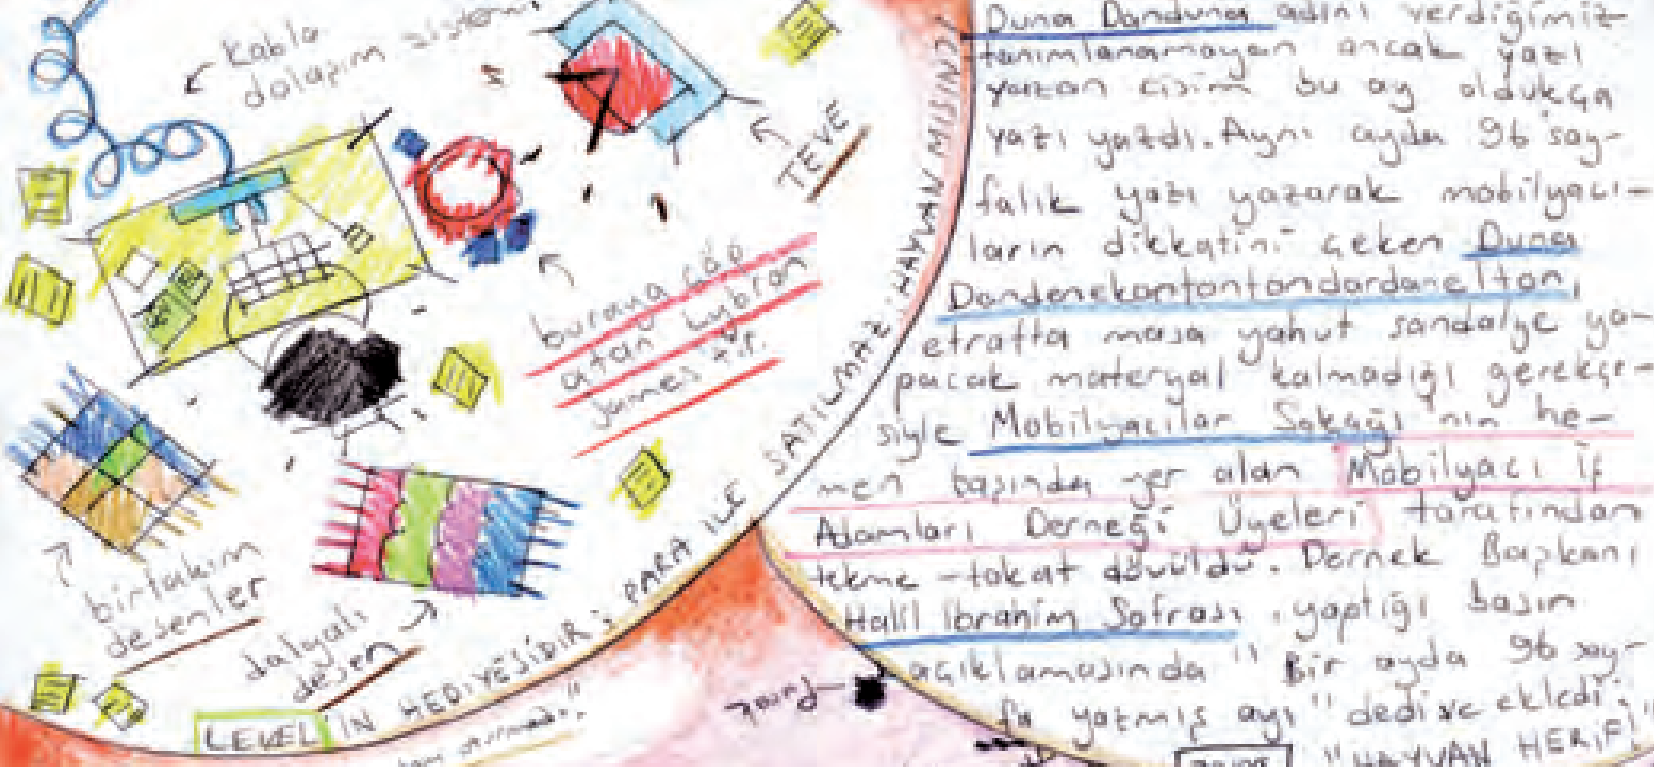 Kablo
dolaşım sistemi
TEVE
buraya çöp
atan
James
birtakım
desenler
dalgalı
desen
LEVEL'İN HEDİYESİDİR; PARA İLE SATILMAZ.
Duna Danduna adını verdiğimiz
tanımlanamayan ancak yazı
yazan cisim bu ay oldukça
yazı yazdı. Aynı ayda 96 say-
falık yazı yazarak mobilyacı-
ların dikkatini çeken Duna
Dandenekantantandardaneltan,
etrafta masa yahut sandalye ya-
pacak materyal kalmadığı gerekçe-
siyle Mobilyacılar Sokağı'nın he-
men başında yer alan Mobilyacı İş
Adamları Derneği Üyeleri tarafından
tekme-tokat dövüldü. Dernek Başkanı
Halil İbrahim Sofrası, yaptığı basın
açıklamasında "Bir ayda 96 say-
fa yazmış ayı" dedi ve ekledi:
"HAYVAN HERİF!"